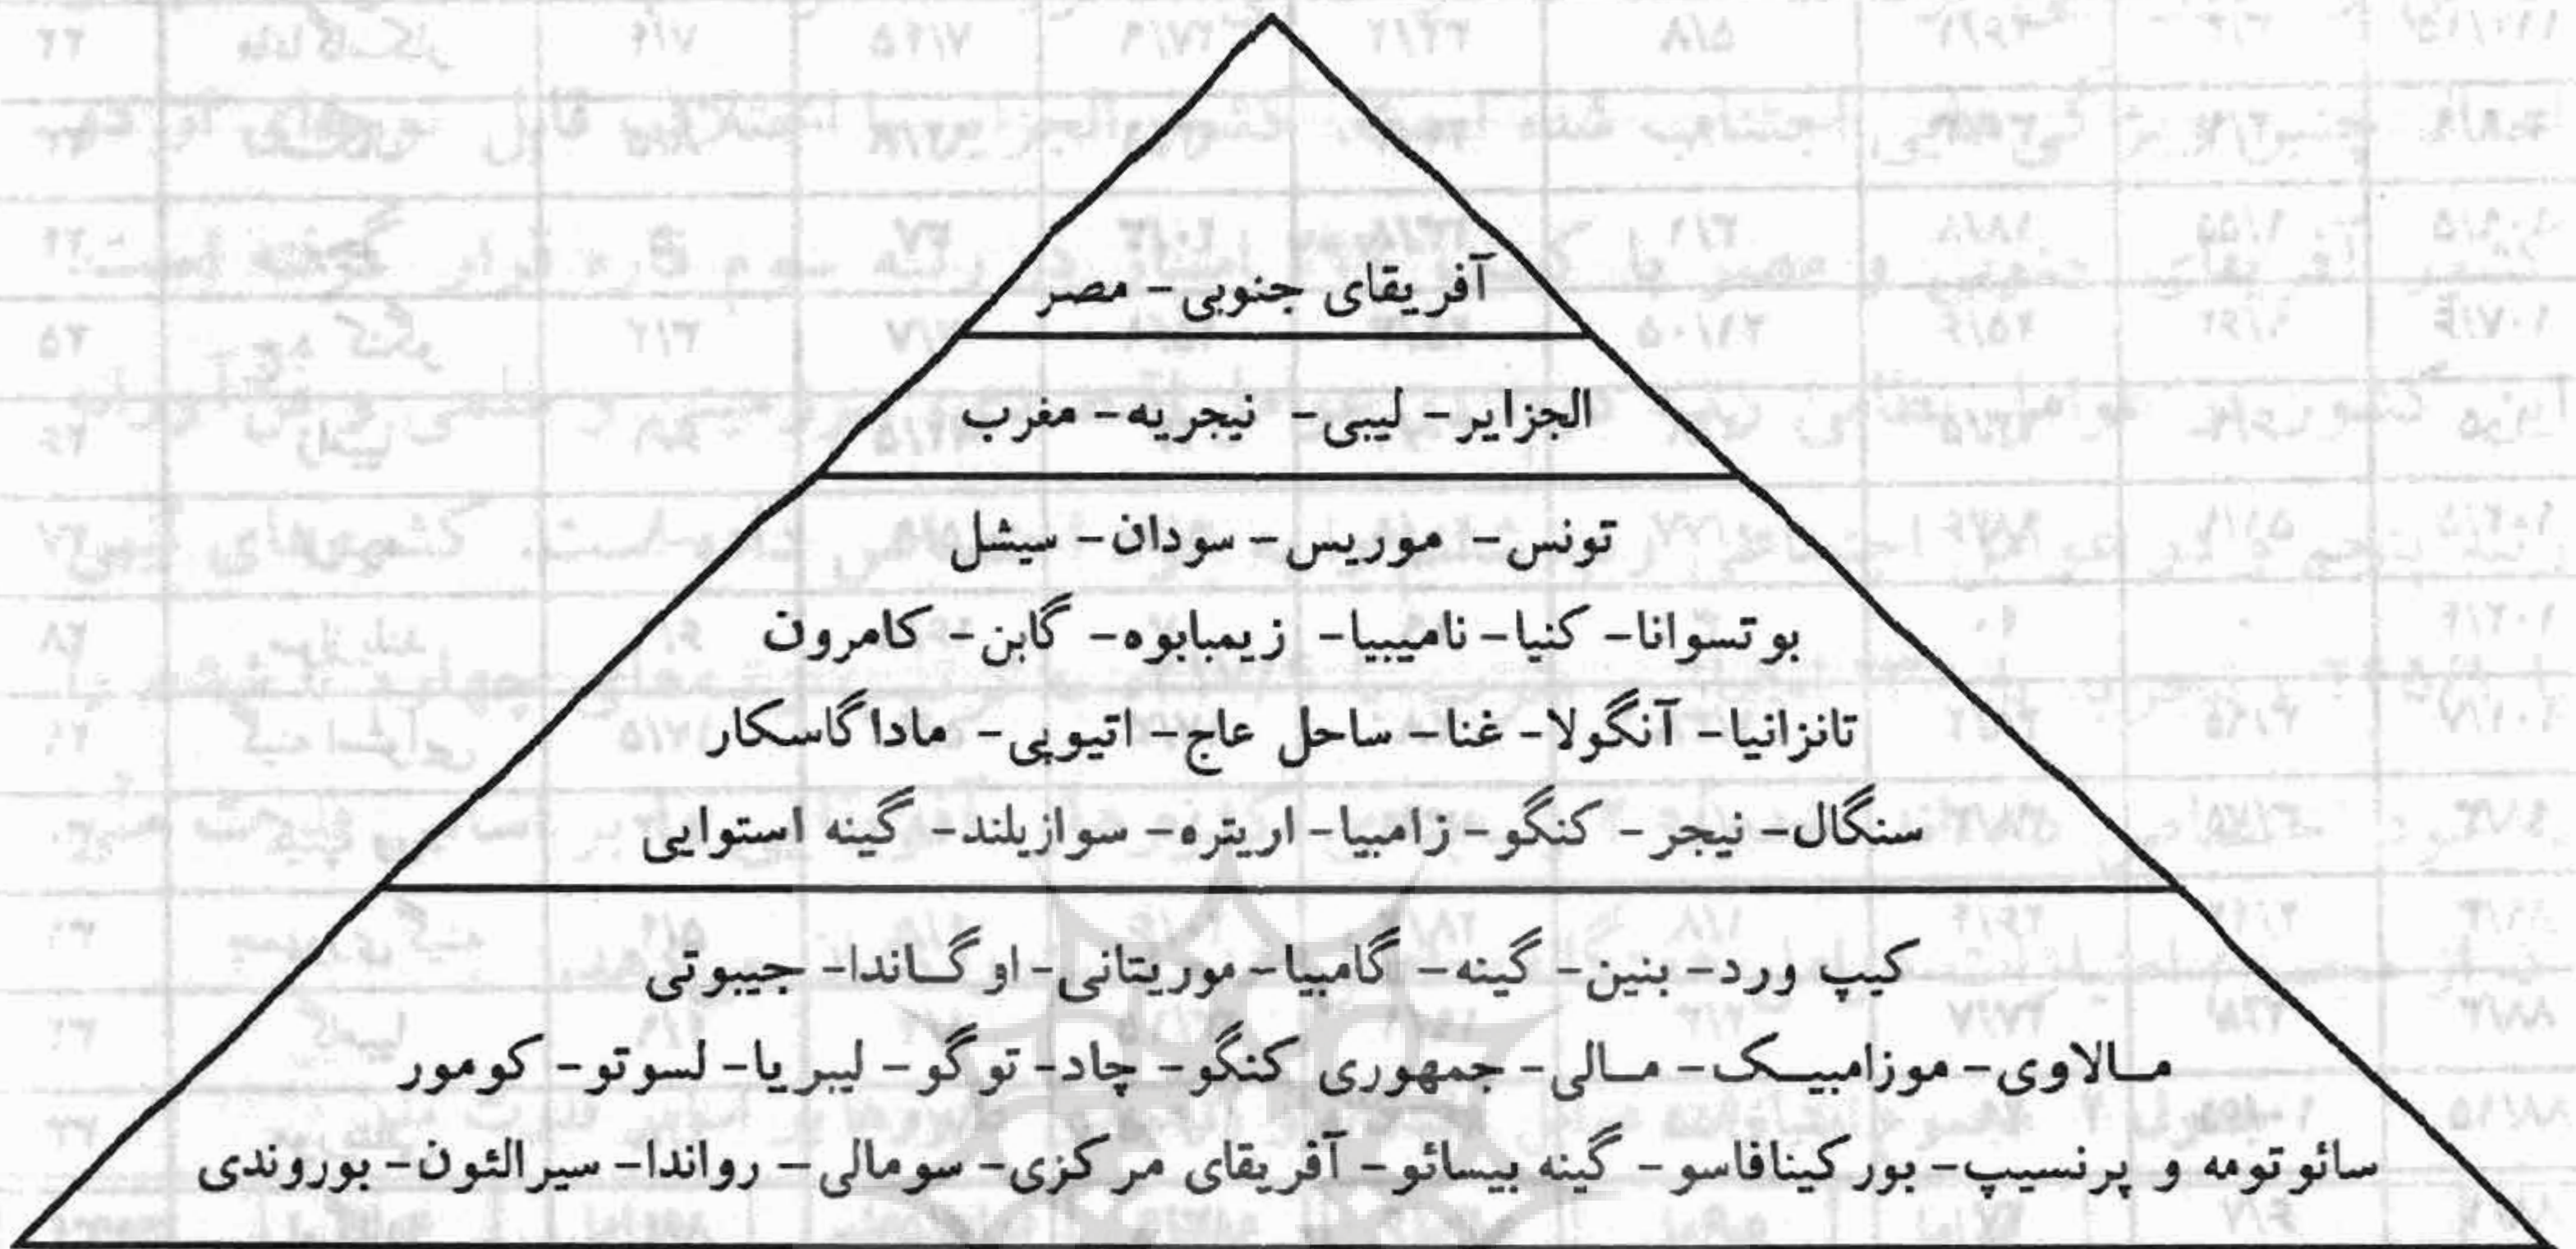 آفریقای جنوبی - مصر
الجزایر - لیبی - نیجریه - مغرب
تونس - موریس - سودان - سیشل
بوتسوانا - کنیا - نامیبیا - زیمبابوه - گابن - کامرون
تانزانیا - آنگولا - غنا - ساحل عاج - اتیوپی - ماداگاسکار
سنگال - نیجر - کنگو - زامبیا - اریتره - سوازیلند - گینه استوایی
کیپ ورد - بنین - گینه - گامبیا - موریتانی - اوگاندا - جیبوتی
مالاوی - موزامبیک - مالی - جمهوری کنگو - چاد - توگو - لیبریا - لسوتو - کومور
سائوتومه و پرنسیپ - بورکینافاسو - گینه بیسائو - آفریقای مرکزی - سومالی - رواندا - سیرالئون - بوروندی